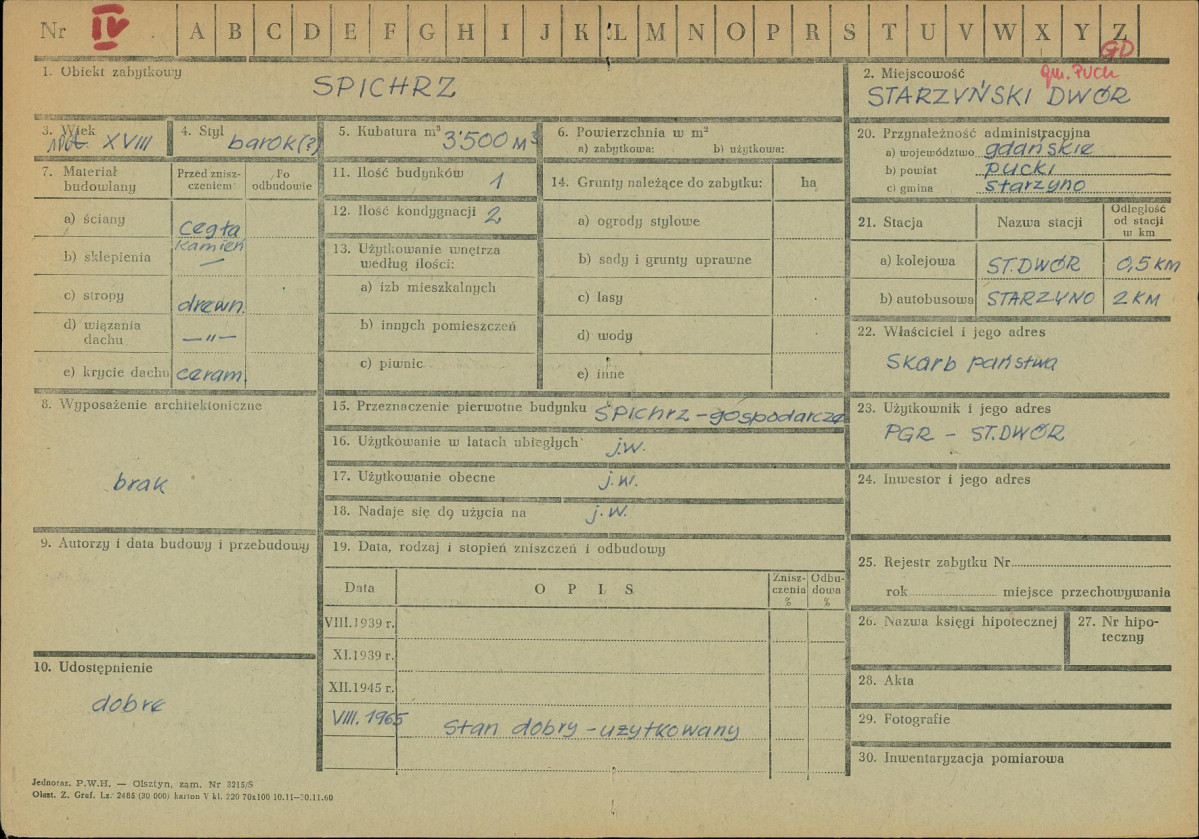 Nr IV A B C D E F G H I J K L M N O P R S T U V W X Y Z
GD
gm. PUCK
1. Obiekt zabytkowy
SPICHRZ
2. Miejscowość
STARZYŃSKI DWÓR
3. Wiek
XVIII
4. Styl
barok(?)
5. Kubatura m³
3'500 M³
6. Powierzchnia w m²
a) zabytkowa: b) użytkowa:
7. Materiał budowlany
Przed zniszczeniem
Po odbudowie
a) ściany
cegła
kamień
b) sklepienia —
c) stropy
drewn.
d) wiązania dachu — " —
e) krycie dachu ceram
8. Wyposażenie architektoniczne
brak
9. Autorzy i data budowy i przebudowy
10. Udostępnienie
dobre
11. Ilość budynków 1
12. Ilość kondygnacji 2
13. Użytkowanie wnętrza według ilości:
a) izb mieszkalnych
b) innych pomieszczeń
c) piwnic
14. Grunty należące do zabytku: ha
a) ogrody stylowe
b) sady i grunty uprawne
c) lasy
d) wody
e) inne
15. Przeznaczenie pierwotne budynku Spichrz - gospodarcze
16. Użytkowanie w latach ubiegłych j.w.
17. Użytkowanie obecne j.w.
18. Nadaje się do użycia na j.w.
19. Data, rodzaj i stopień zniszczeń i odbudowy
Data
OPIS
Zniszczenia %
Odbudowa %
VIII.1939 r.
XI.1939 r.
XII.1945 r.
VIII.1965 Stan dobry - użytkowany
20. Przynależność administracyjna
a) województwo gdańskie
b) powiat pucki
c) gmina starzyno
21. Stacja
Nazwa stacji
Odległość od stacji w km
a) kolejowa ST.DWÓR 0,5 KM
b) autobusowa STARZYNO 2 KM
22. Właściciel i jego adres
Skarb państwa
23. Użytkownik i jego adres
PGR - ST.DWÓR
24. Inwestor i jego adres
25. Rejestr zabytku Nr
rok miejsce przechowywania
26. Nazwa księgi hipotecznej
27. Nr hipoteczny
28. Akta
29. Fotografie
30. Inwentaryzacja pomiarowa
Jednoraz. P.W.H. — Olsztyn, zam. Nr 3215/S
Olszt. Z. Graf. Lz. 2485 (30 000) karton V kl. 220 70x100 10.11—30.11.60